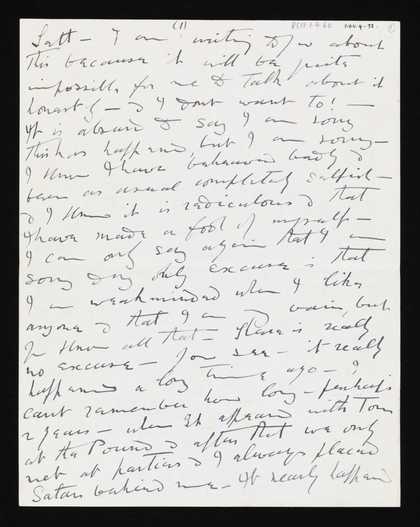 (1)
Salt — I am writing to you about
this because it will be quite
impossible for me to talk about it
honestly — & I dont want to! —
It is absurd to say I am sorry
this has happened, but I am sorry —
I know I have behaved badly &
been as usual completely selfish —
& I know it is rediculous & that
I have made a fool of myself —
I can only say again that I am
sorry & my only excuse is that
I am weakminded when I like
anyone & that I am vain, but
you know all that — there is really
no excuse — You see — it really
happened a long time ago — I
cant remember how long — perhaps
2 years — when appeared with Tom
at the Pound & after that we only
met at parties & I always placed
Satan behind me — It nearly happened